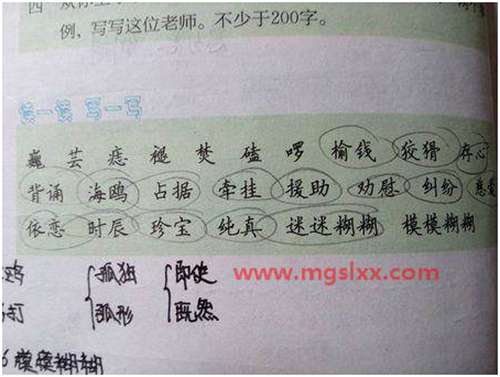 例，写写这位老师。不少于200字。
读一读 写一写
巍 芸 痣 褪 焚 磕 啰 榆钱 狡猾 存心
背诵 海鸥 占据 牵挂 援助 劝慰 纠纷
依恋 时辰 珍宝 纯真 迷迷糊糊 模模糊糊
鸡 孤独 即使
www.mgslxx.com
钉 弧形 既然
模模糊糊